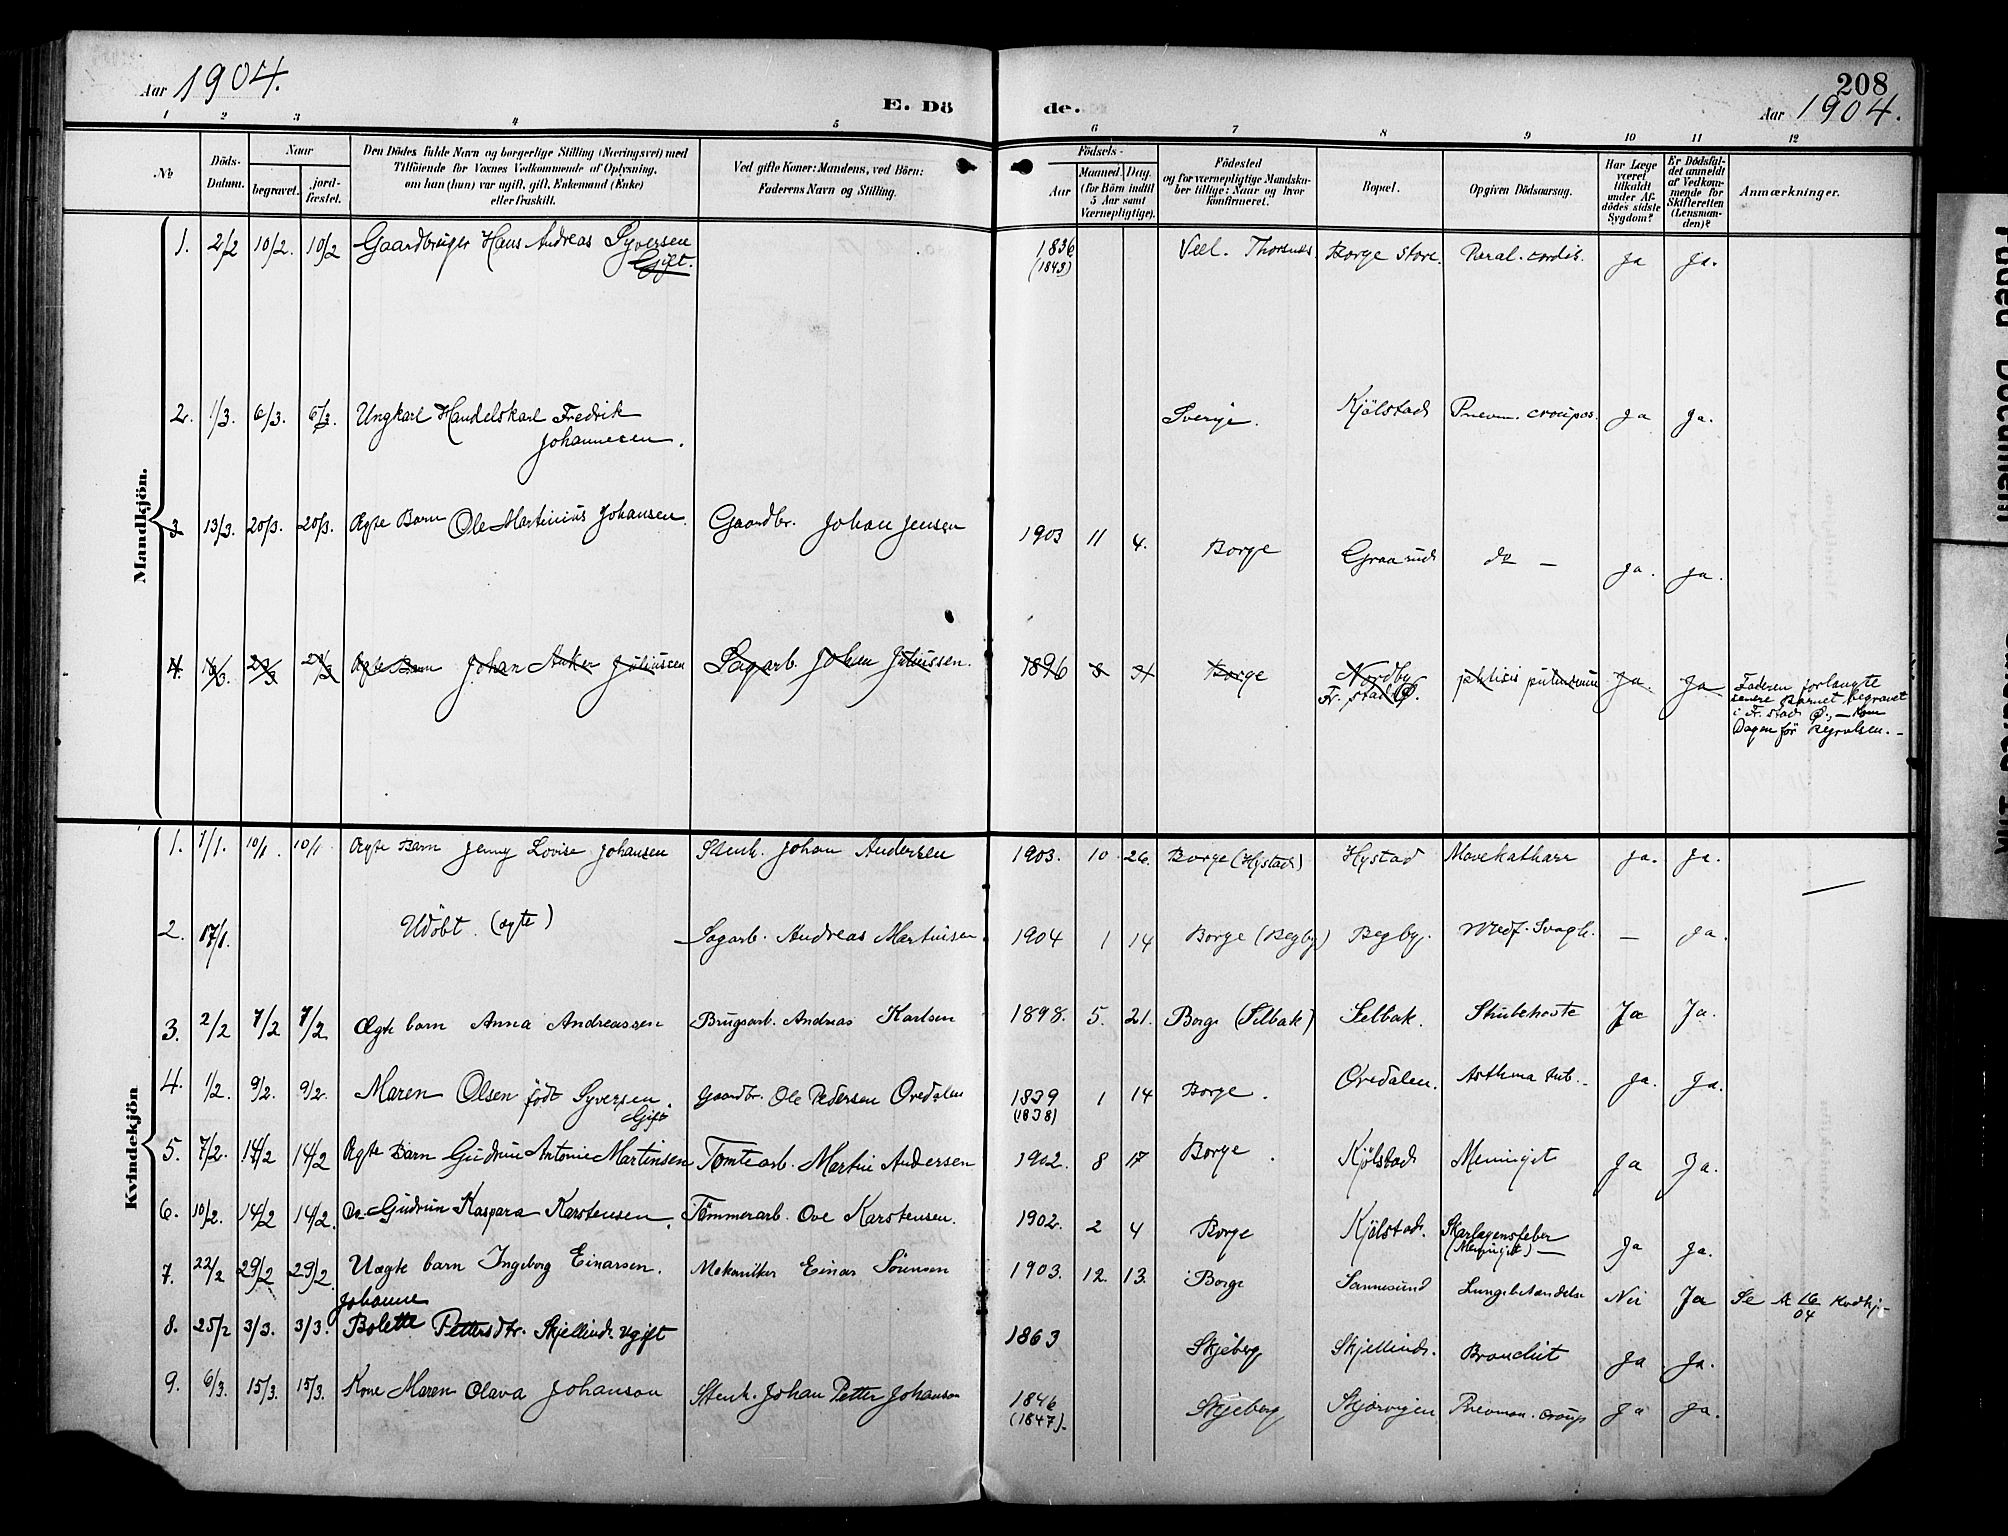 Aar 1904.
E. Dö
de.
208
Aar 1904.
1 2 3 4 5 6 7 8 9 10 11 12
№
Döds-
Datum.
Naar
begravet.
jord-
fæstet.
Den Dödes fulde Navn og borgerlige Stilling (Næringsvei) med
Tilföiende for Voxnes Vedkommende af Oplysning,
om han (hun) var ugift, gift, Enkemand (Enke)
eller fraskilt.
Ved gifte Koner: Mandens, ved Börn:
Faderens Navn og Stilling.
Födsels-
Aar
Maaned. Dag.
(for Börn indtil
5 Aar samt
Værnepligtige).
Födested
og for værnepligtige Mandska-
ber tillige: Naar og hvor
konfirmeret.
Bopæl.
Opgiven Dödsaarsag.
Har Læge
været
tilkaldt
under Af-
dödes sidste
Sygdom?
Er Dödsfal-
det anmeldt
af Vedkom-
mende for
Skifteretten
(Lensman-
den)?
Anmærkninger.
Mandkjön.
1. 2/2 10/2. 10/2 Gaardbruger Hans Andreas Syversen 1836 Thorsnes Borge store. cordis. Ja Ja.
Gift. (1843)
2. 1/3. 6/3. 6/3 Ungkarl Handelskarl Fredrik Sverje. Kjölstad Pnevm. croupos. Ja Ja.
Johannesen.
3 13/3. 20/3. 20/3. Ægte Barn Ole Martinius Johansen. Gaardbr. Johan Jensen 1903 11 4. Borge Graarud do — Ja. Ja.
4. 16/3. Ægte Barn Johan Anker Juliussen Sagarb. Johan Juliussen. 1896 Borge Nordby Ja Ja
Fr. stad Ø.
Faderen forlangte
senere Barnet begravet
i Fr. stad Ø., — Kom
Dagen før Begravelsen. –
Kvindekjön
1. 1/1. 10/1. 10/1 Ægte Barn Jenny Lovise Johansen Stenh. Johan Andersen 1903. 10 26. Borge (Hystad) Hystad Mavekatharr Ja. Ja.
2. 17/1. Udöbt. (ægte) Sagarb. Andreas Martinsen. 1904 1 14 Borge (Begby) Begby. Medf. Svagh. — Ja.
3. 2/2 7/2 7/2 Ægte barn Anna Andreassen Brugsarb. Andreas Karlsen 1898. 5. 21. Borge (Selbak) Selbak. Strubehoste Ja Ja.
4. 1/2. 9/2. 9/2. Maren Olsen født Syversen. Gaardbr. Ole Pedersen Oredalen 1839 1 14 Borge. Oredalen. Asthma Ja. Ja.
Gift (1838)
5. 7/2. 14/2 14/2 Ægte Barn Gudrun Antonie Martinsen Tomtearb. Martin Andersen 1902. 8 17 Borge. Kjölstad Meningit Ja Ja.
6. 10/2. 14/2 14/2. Do Gudrun Kaspara Karstensen. Tømmerarb. Ove Karstensen. 1902. 2 4 Borge Kjölstad. Skarlagensfeber Ja Ja.
(Meningit) —
7. 22/2 29/2 29/2. Uægte barn Ingeborg Einarsen. Mekaniker Einar Sörensen 1903. 12. 13. Borge Sannesund Lungebetændelse Nei Ja Se № 16/04
Johanne
8. 25/2 3/3. 3/3. Bolette Pettersdtr. Skjellind. Ugift 1863 Skjeberg Skjellind. Bronchit Ja Ja.
9. 6/3. 15/3. 15/3. Kone Maren Olava Johanson Stenh. Johan Petter Johanson 1846 Skjeberg Skjærvigen Pnevmon. croup Ja Ja.
(1847).